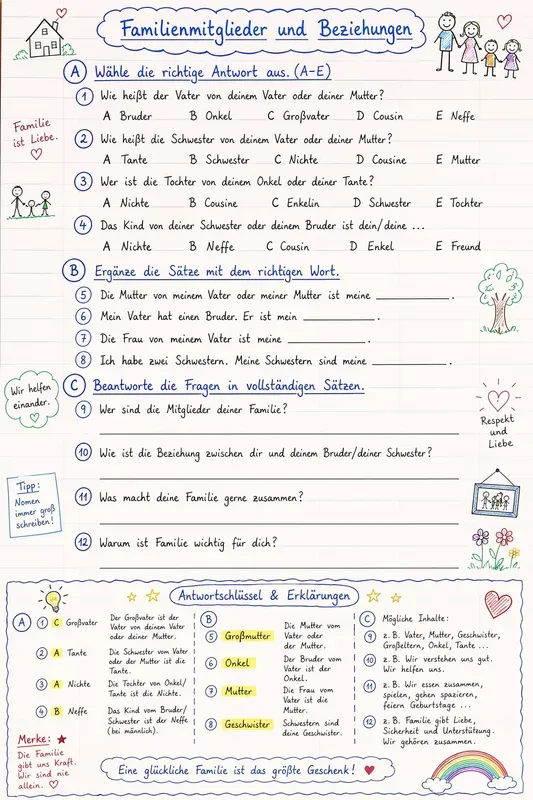 Familienmitglieder und Beziehungen
A Wähle die richtige Antwort aus. (A-E)
1 Wie heißt der Vater von deinem Vater oder deiner Mutter?
A Bruder B Onkel C Großvater D Cousin E Neffe
Familie
ist Liebe.
2 Wie heißt die Schwester von deinem Vater oder deiner Mutter?
A Tante B Schwester C Nichte D Cousine E Mutter
3 Wer ist die Tochter von deinem Onkel oder deiner Tante?
A Nichte B Cousine C Enkelin D Schwester E Tochter
4 Das Kind von deiner Schwester oder deinem Bruder ist dein/deine ...
A Nichte B Neffe C Cousin D Enkel E Freund
B Ergänze die Sätze mit dem richtigen Wort.
5 Die Mutter von meinem Vater oder meiner Mutter ist meine ____________ .
6 Mein Vater hat einen Bruder. Er ist mein ____________ .
7 Die Frau von meinem Vater ist meine ____________ .
8 Ich habe zwei Schwestern. Meine Schwestern sind meine ____________ .
C Beantworte die Fragen in vollständigen Sätzen.
Wir helfen
einander.
9 Wer sind die Mitglieder deiner Familie?
Respekt
und
Liebe
10 Wie ist die Beziehung zwischen dir und deinem Bruder/deiner Schwester?
Tipp:
Nomen
immer groß
schreiben!
11 Was macht deine Familie gerne zusammen?
12 Warum ist Familie wichtig für dich?
Antwortschlüssel & Erklärungen
A
1 C Großvater
Der Großvater ist der
Vater von deinem Vater
oder deiner Mutter.
2 A Tante
Die Schwester vom Vater
oder der Mutter ist die
Tante.
3 A Nichte
Die Tochter von Onkel/
Tante ist die Nichte.
4 B Neffe
Das Kind vom Bruder/
Schwester ist der Neffe
(bei männlich).
Merke:
Die Familie
gibt uns Kraft.
Wir sind nie
allein.
B
5 Großmutter
Die Mutter vom
Vater oder
der Mutter.
6 Onkel
Der Bruder vom
Vater ist der
Onkel.
7 Mutter
Die Frau vom
Vater ist die
Mutter.
8 Geschwister
Schwestern sind
deine Geschwister.
C Mögliche Inhalte:
9 z. B. Vater, Mutter, Geschwister,
Großeltern, Onkel, Tante ...
10 z. B. Wir verstehen uns gut.
Wir helfen uns.
11 z. B. Wir essen zusammen,
spielen, gehen spazieren,
feiern Geburtstage ...
12 z. B. Familie gibt Liebe,
Sicherheit und Unterstützung.
Wir gehören zusammen.
Eine glückliche Familie ist das größte Geschenk!